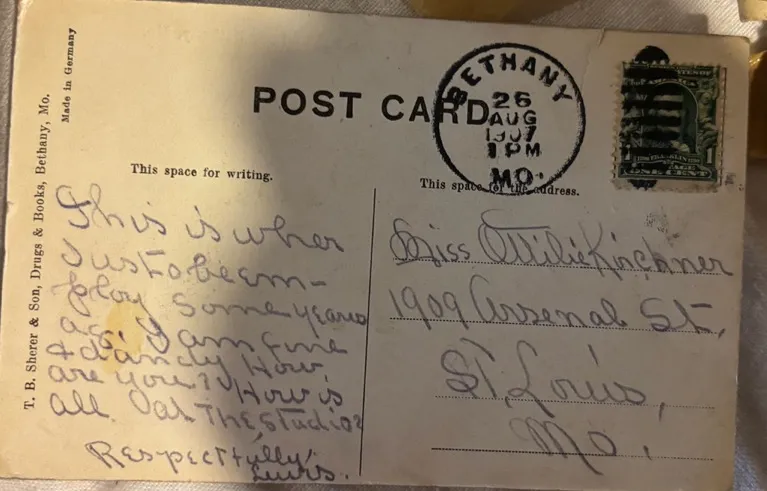 T. B. Sherer & Son, Drugs & Books, Bethany, Mo.
Made in Germany
POST CARD
BETHANY
26
AUG
1907
1 PM
MO.
This space for writing.
This space for the address.
ONE CENT
This is wher
I ust to be em-
ploy some years
ago. I am fine
& dandy How
are you? How is
all at The Studio?
Respectfully,
Lewis.
Miss Ottilie Kirschner
1909 Arsenal St,
St, Louis,
Mo.